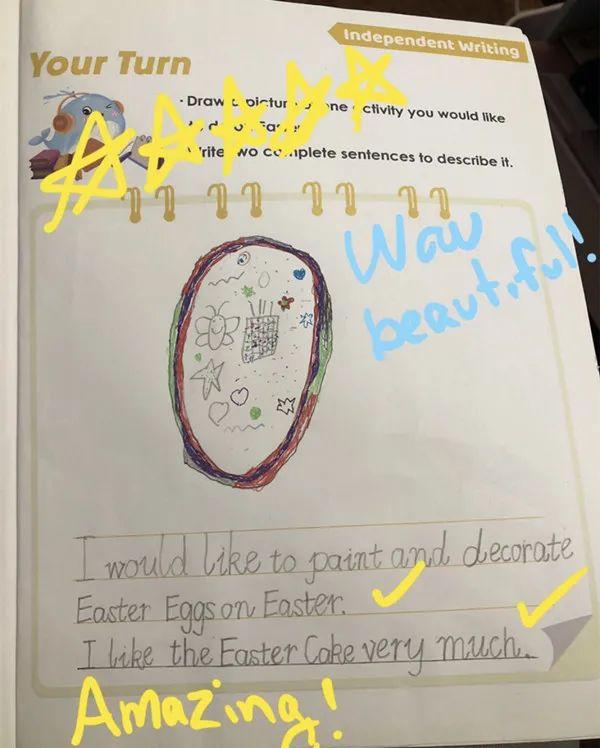 Independent Writing
Your Turn
· Draw a picture one activity you would like
to do Easter
Write two complete sentences to describe it.
Wow
beautiful!
I would like to paint and decorate
Easter Eggs on Easter.
I like the Easter Cake very much.
Amazing!